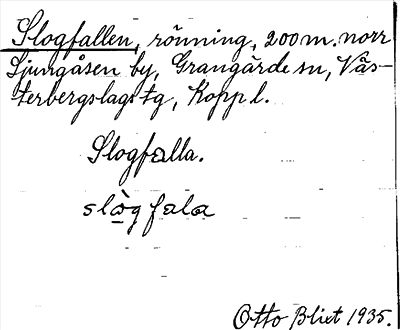 Slogfallen, rönning, 200 m. norr
Ljungåsen by, Grangärde sn, Väs-
terbergslags tg, Kopp l.
Slogfalla.
slò̱g fala
Otto Blixt 1935.